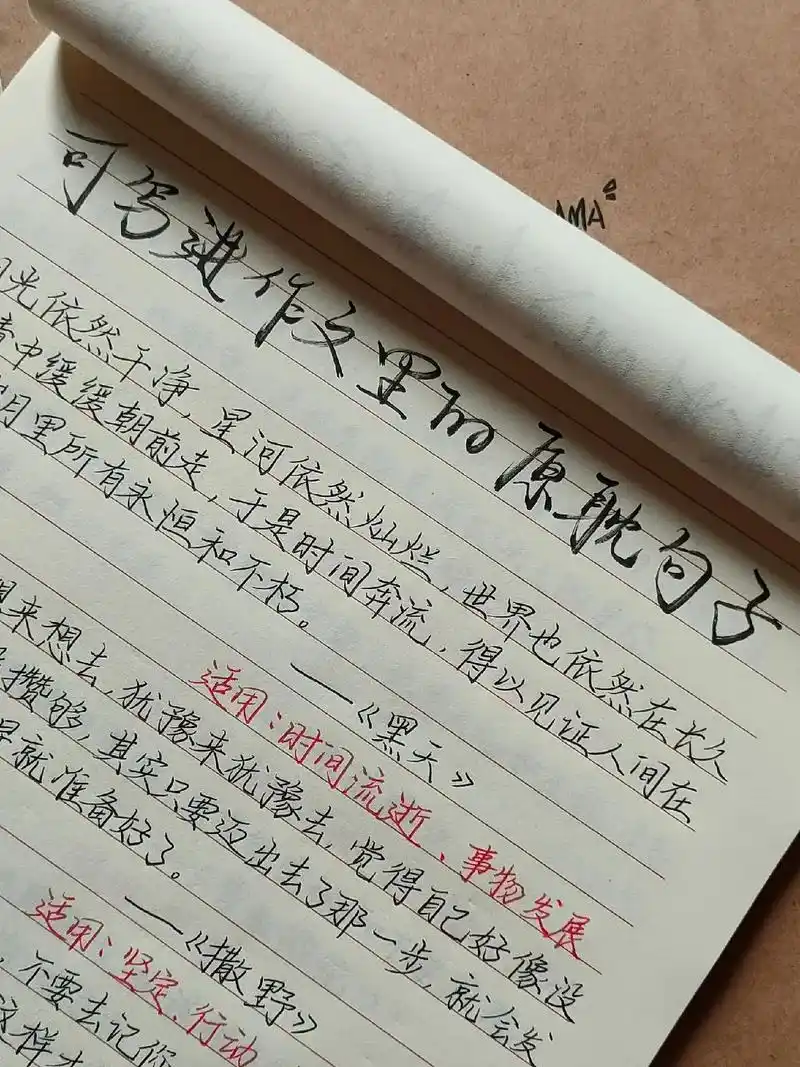 AMA
可写进作文里的原耽句子
月光依然干净，星河依然灿烂，世界也依然在长久
情中缓缓朝前走，于是时间奔流，得以见证人间在
月里所有永恒和不朽。
——《黑天》
适用：时间流逝、事物发展
想来想去，犹豫来犹豫去，觉得自己好像没
攒够，其实只要迈出去了那一步，就会发
早就准备好了。
——《撒野》
适用：坚定、行动
，不要去记你
这样才